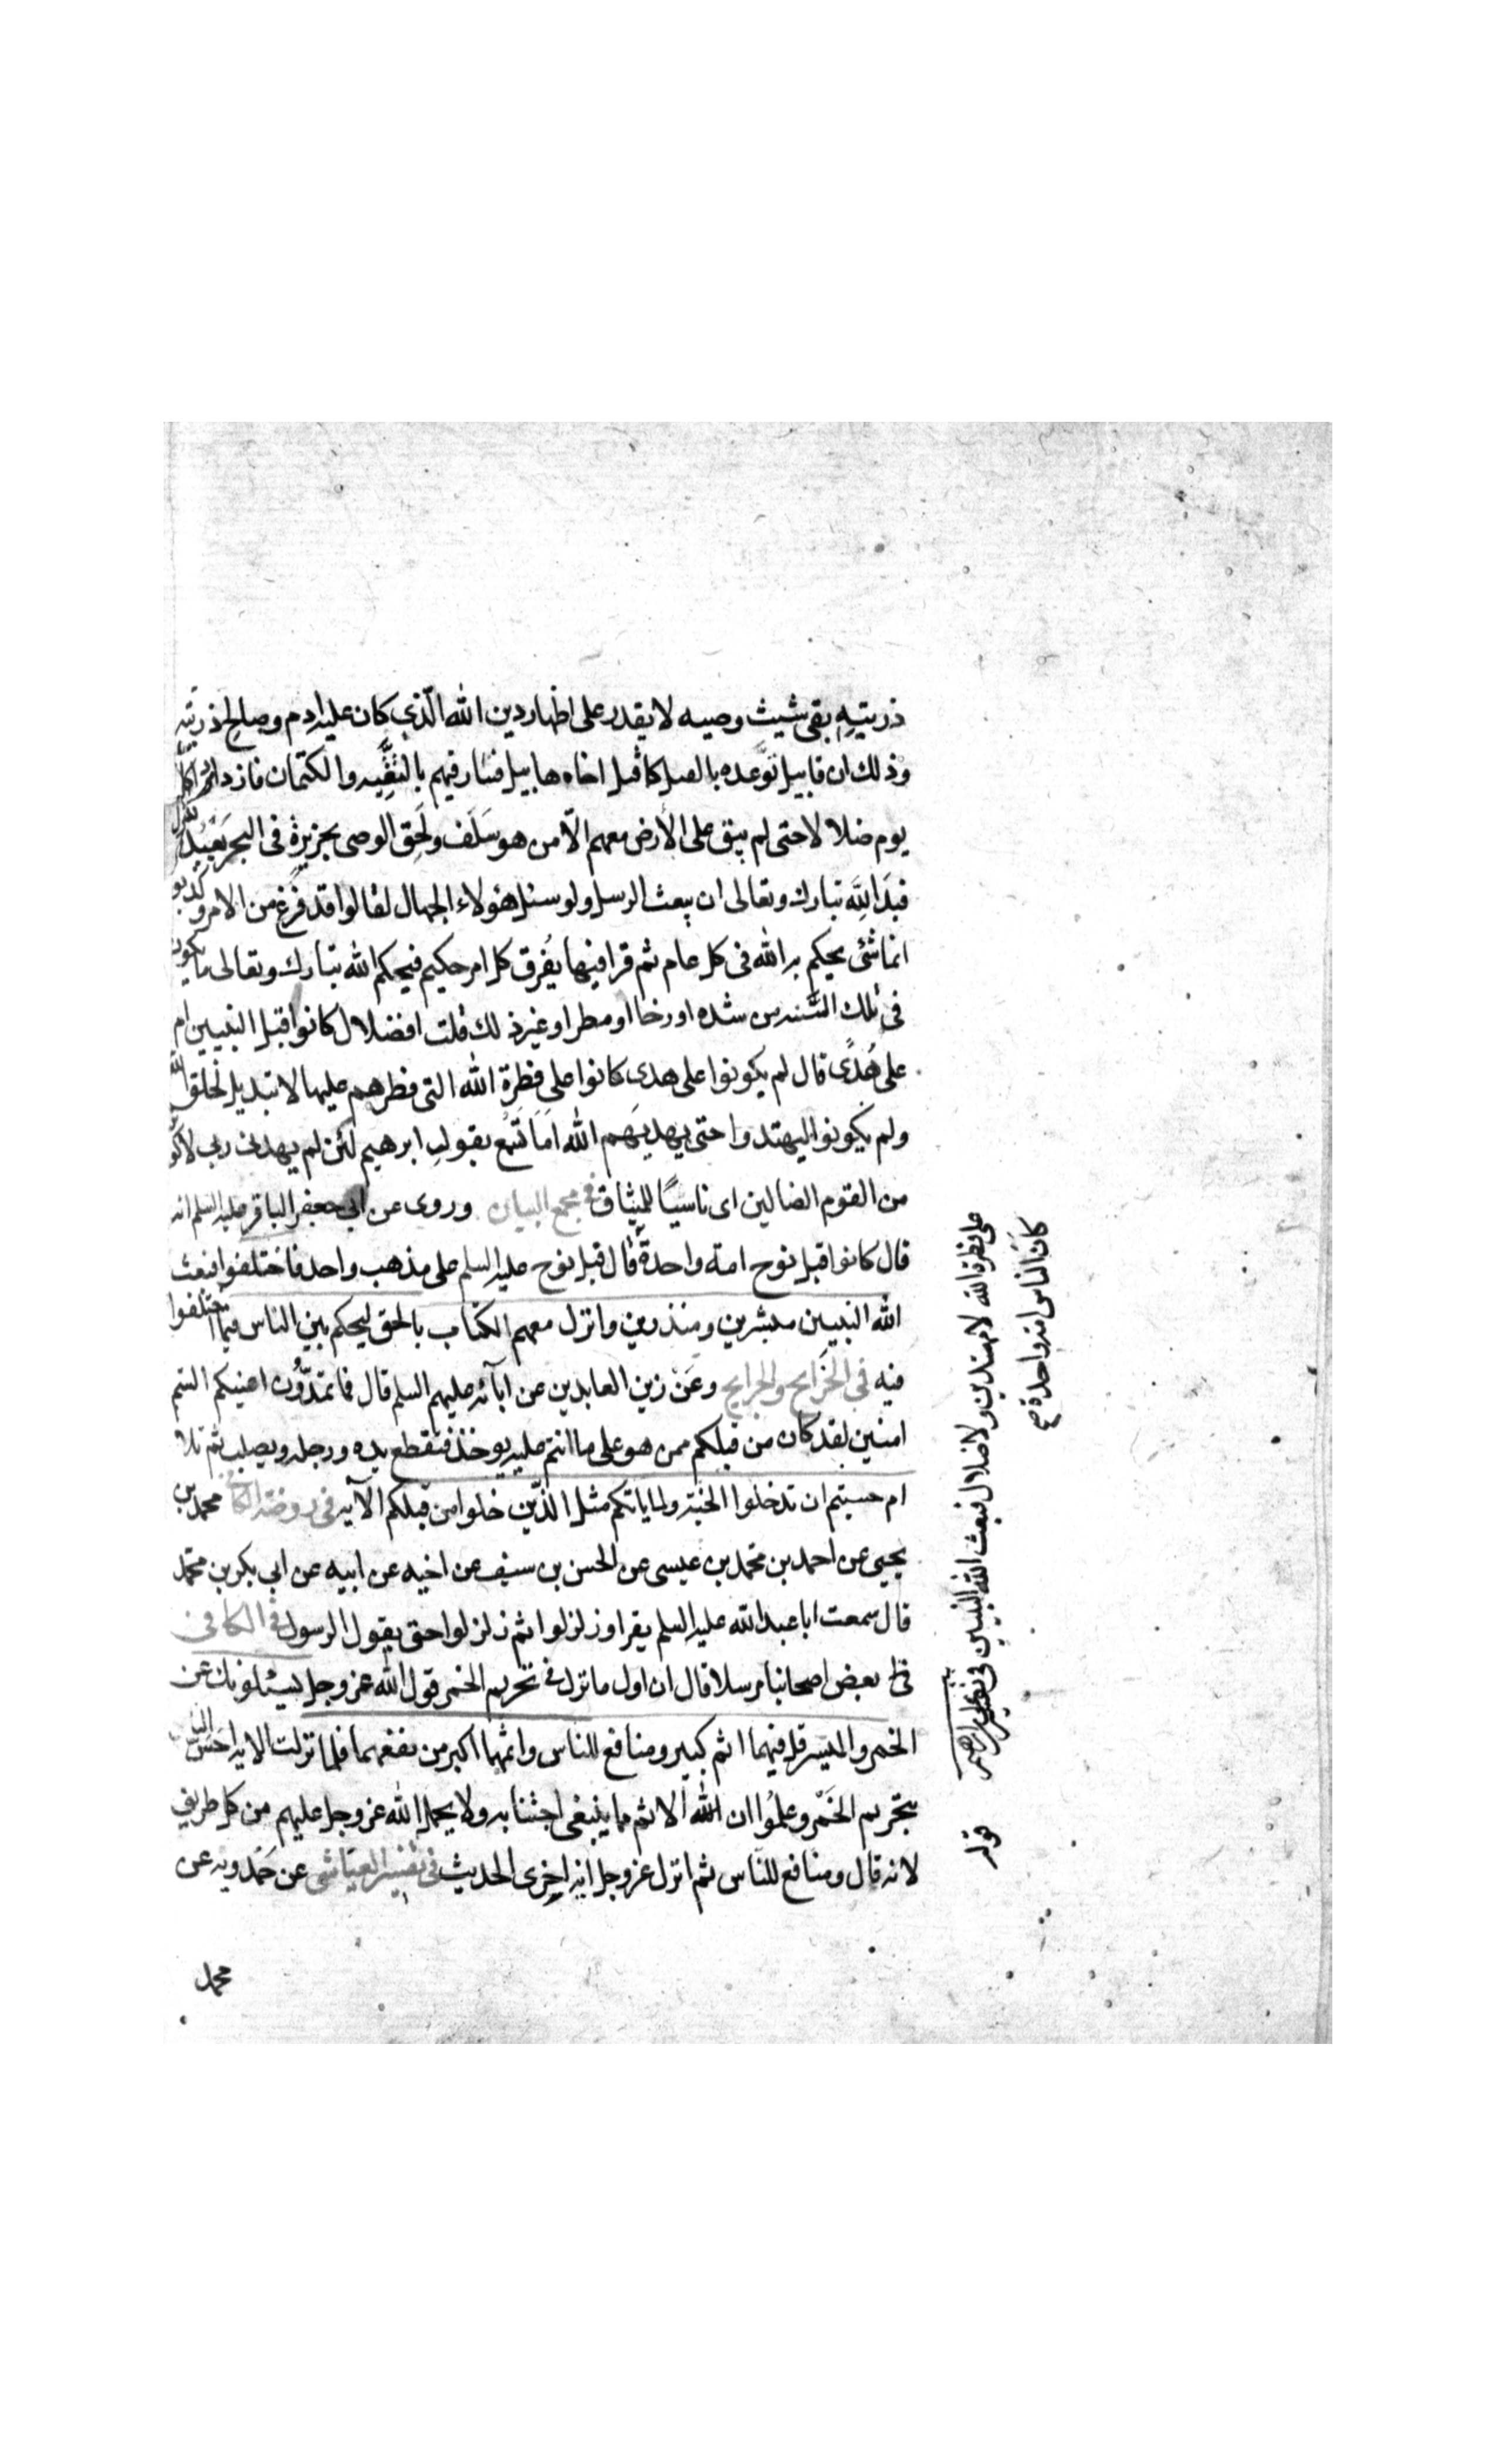 ذريته بقى شيث وصيه لا يقدر على اظهار دين الله الّذي كان عليه ادم وصالح ذريته
وذلك ان قابيل توعّده بالقتل كما قتل اخاه هابيل فسار فيهم بالتقيّه والكتمان فازدادوا كل
يوم ضلالا حتى لم يبق على الأرض معهم الّا من هو سَلَف ولَحِق الوصى بجزيرة فى البحر يعبد الله
فبدا للّه تبارك وتعالى ان يبعث الرسل ولو سئل هؤلاء الجهال لقالوا قد فُرغ من الامر وكذبوا
انما شئ يحكم به الله فى كل عام ثم قرا فيها يُفرق كل امر حكيم فيحكم الله تبارك وتعالى ما يكون
فى تلك السَّنه من شده او رخا او مطر او غير ذلك قلت افضلال كانوا قبل النبيين ام
على هُدًى قال لم يكونوا على هدى كانوا على فطرة الله التى فطرهم عليها لا تبديل لخلق الله
ولم يكونوا ليهتدوا حتى يهديهم الله اَمَا تَسمَع بقول ابرهيم لئن لم يهدنى ربى لاكونن
من القوم الضالين اى ناسيًا للميثاق فى مجمع البيان وروى عن ابي جعفر الباقر عليه السلم انه
قال كانوا قبل نوح امة واحدة قال قبل نوح عليه السلم على مذهب واحد فاختلفوا فبعث
الله النبيين مبشرين ومنذرين وانزل معهم الكتاب بالحق ليحكم بين الناس فيما اختلفوا
فيه فى الخرايج والجرايح وعَن زين العابدين عن ابآئه عليهم السلم قال فما تمدّون اعينكم الستم
امنين لقد كان من قبلكم ممن هو على ما انتم عليه يوخذ فتقطع يده ورجله ويصلب ثم تلا
ام حسبتم ان تدخلوا الجنة ولما ياتكم مثل الّذين خلوا من قبلكم الآيه فى روضة الكافى محمد بن
يحيى عن احمد بن محمد بن عيسى عن الحسن بن سيف عن اخيه عن ابيه عن ابي بكر بن محمد
قال سمعت ابا عبد الله عليه السلم يقرا وزلزلوا ثم زلزلوا حتى يقول الرسول فى الكافى
بعض اصحابنا مرسلا قال ان اول ما نزل فى تحريم الخمر قول الله عز وجل يسئلونك عن
الخمر والميسر قل فيهما اثم كبير ومنافع للناس واثمهما اكبر من نفعهما فلما نزلت الايه احس الناس
بتحريم الخَمْر وعلمُوا ان الله الاثم مما ينبغى اجتنابه ولا يحمل الله عز وجل عليهم من كل طريق
لانه قال ومنافع للنّاس ثم انزل عز وجل اية اخرى الحديث فى تفسير العياشى عن حمدويه عن
محمد
كان الناس امة واحدة صح
على فطرة الله لا مهتدين ولا ضلال فبعث الله النبيين فى تفسير على بن ابراهيم
قوله